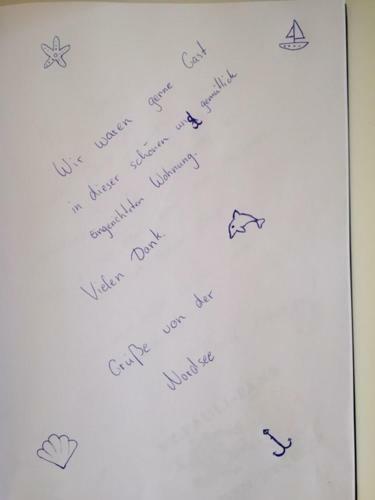 Wir waren gerne Gast
in dieser schönen und gemütlich
eingerichteten Wohnung.
Vielen Dank.
Grüße von der
Nordsee